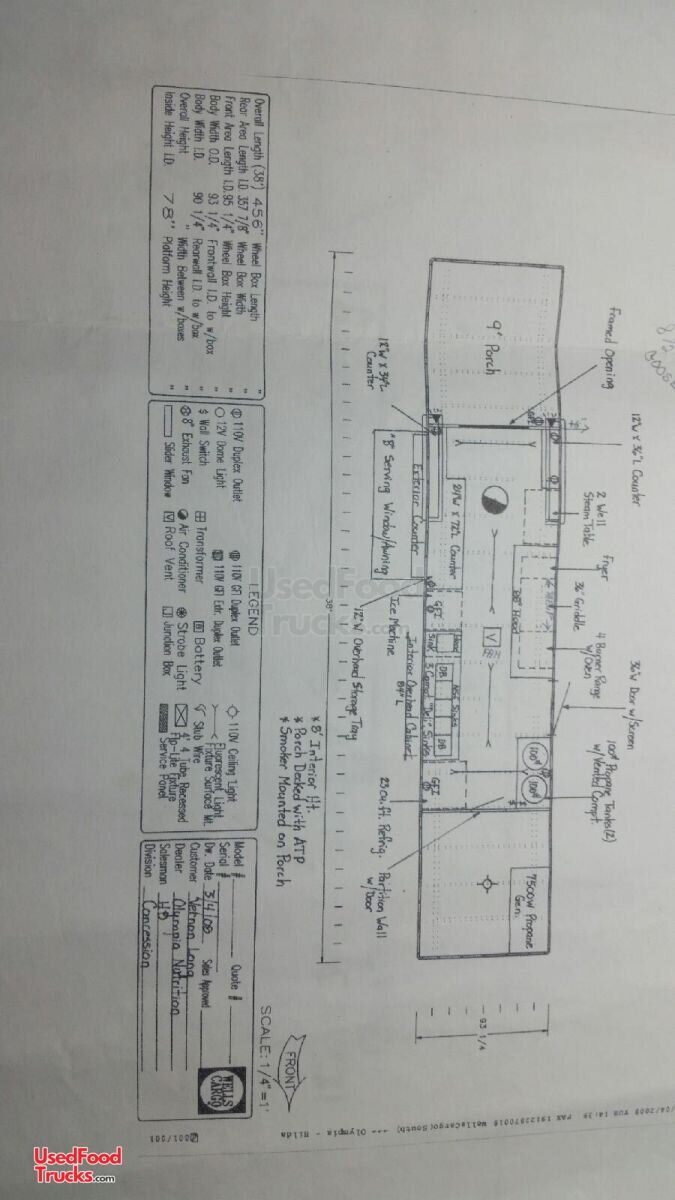 /04/2003 TUE 14:39 FAX 19122870018 WellsCargo(South) →→→ Olympia - Hilda
001/001
FRONT
SCALE: 1/4"=1'
93 1/4
12"W x 36"L Counter
2 Well
Steam Table
Fryer
36" Griddle
4 Burner Range
w/Oven
36"W Door w/Screen
100# Propane Tanks(2)
w/Vented Compt.
Framed Opening
9' Porch
88" Hood
24"W x 72"L Counter
Exterior Counter
GFI
Hand
Sink
DB
3 Compt "Deli" Sinks
DB
100#
100#
GFI
7500W Propane
Gen.
12"W x 34"L
Counter
*8' Serving Window/Awning
12"W Overhead Storage Tray
Ice Machine
Interior Overhead Cabinet
84" L
23 cu.ft. Refrig.
Partition Wall
w/Door
38'
* 8' Interior Ht.
* Porch Decked with ATP
* Smoker Mounted on Porch
Overall Length (38') 456" Wheel Box Length "
Rear Area Length I.D. 357 7/8" Wheel Box Width "
Front Area Length I.D. 95 1/4" Wheel Box Height "
Body Width O.D. 93 1/4" Frontwall I.D. to w/box "
Body Width I.D. 90 1/4" Rearwall I.D. to w/box "
Overall Height " Width Between w/boxes "
Inside Height I.D. 78" Platform Height "
LEGEND
110V Duplex Outlet
110V GFI Duplex Outlet
110V Ceiling Light
12V Dome Light
110V GFI Extr. Duplex Outlet
Fluorescent Light
Fixture Surface Mt.
$ Wall Switch
Transformer
B Battery
Stub Wire
8" Exhaust Fan
Air Conditioner
Strobe Light
4' 4 Tube Recessed
Flo-Lite Fixture
Slider Window
V Roof Vent
J Junction Box
Service Panel
Model #
Quote #
Serial #
Dw. Date 3/4/03
Sales Approved
Customer Vernon Long
Dealer Olympia Nutrition
Salesman HB
Division Concession
WELLS
CARGO
UsedFood
Trucks.com
UsedFood
Trucks.com